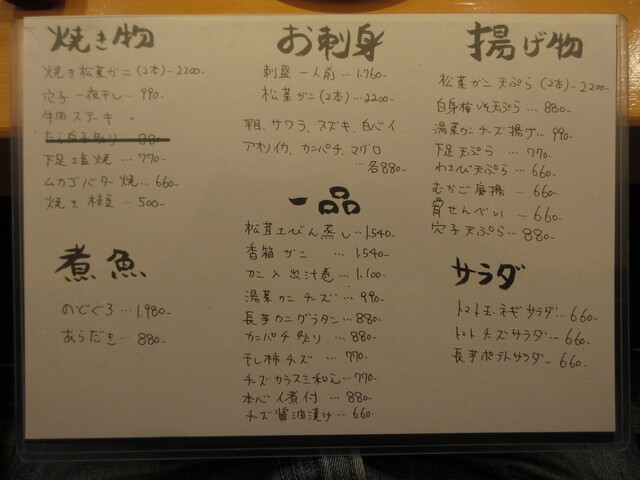 焼き物
焼き松葉ガニ(2本)…2200-
穴子一夜干し…990-
牛肉ステーキ
たら白子炙り 880-
下足塩焼…770-
ムカゴバター焼…660-
焼き枝豆…500-
煮魚
のどぐろ…1,980-
あらだき…880-
お刺身
刺盛一人前…1,760-
松葉ガニ(2本)…2200-
平目、サワラ、スズキ、白バイ
アオリイカ、カンパチ、マグロ
…各880-
一品
松茸土びん蒸し…1,540-
香箱ガニ…1,540-
カニ入出汁巻…1,100-
湯葉カニチーズ…990-
長芋カニグラタン…880-
カンパチ炙り…880-
干し柿チーズ…770-
チーズカラスミ和え…770-
本バイ煮付…880-
チーズ醤油漬け…660-
揚げ物
松葉ガニ天ぷら(2本)…2200-
白身梅しそ天ぷら…880-
湯葉カニチーズ揚げ…990-
下足天ぷら…770-
わさび天ぷら…660-
むかご唐揚…660-
骨せんべい…660-
穴子天ぷら…880-
サラダ
トマト玉ネギサラダ…660-
トマトチーズサラダ…660-
長芋ポテトサラダ…660-